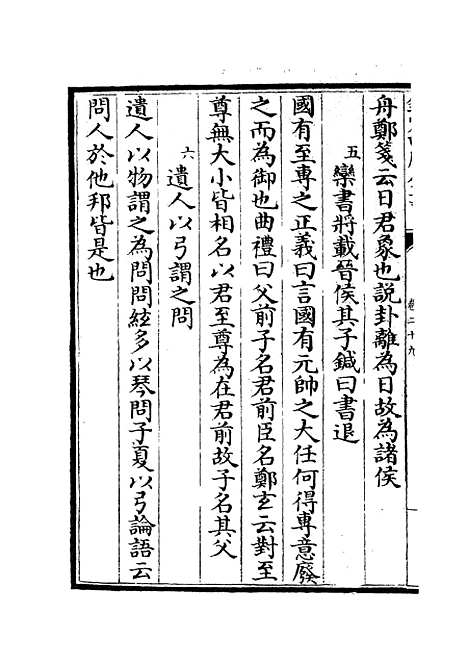 舟鄭箋云日君象也說卦離為日故為諸侯
五 欒書將載晉侯其子鍼曰書退
國有至專之正義曰言國有元帥之大任何得專意廢
之而為御也曲禮曰父前子名君前臣名鄭玄云對至
尊無大小皆相名以君至尊為在君前故子名其父
六 遺人以弓謂之問
遺人以物謂之為問問絃多以琴問子夏以弓論語云
問人於他邦皆是也
卷二十九